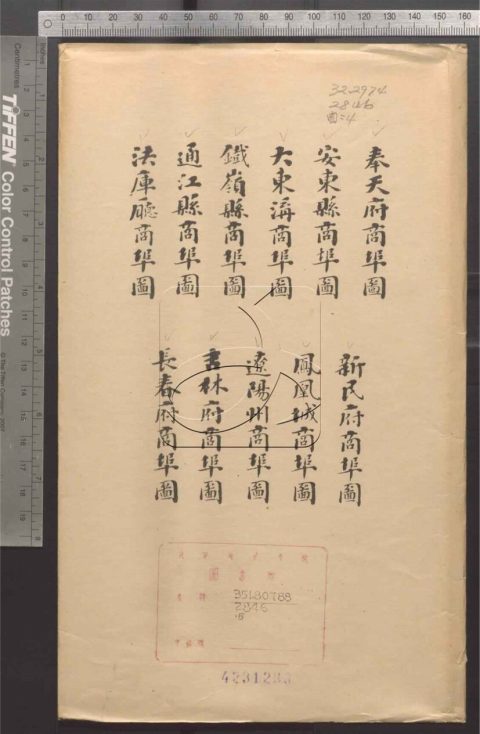 奉天府商埠圖
安東縣商埠圖
大東溝商埠圖
鐵嶺縣商埠圖
通江縣商埠圖
法庫廳商埠圖
新民府商埠圖
鳳凰城商埠圖
遼陽州商埠圖
吉林府商埠圖
長春府商埠圖
322974
2846
圖=4
圖書館
35180788
2846
4231233
TIFFEN Color Control Patches
Centimetres
Inches
0 10 20 30 40 50 60 70 80 90 100 110 120 130 140 150 160